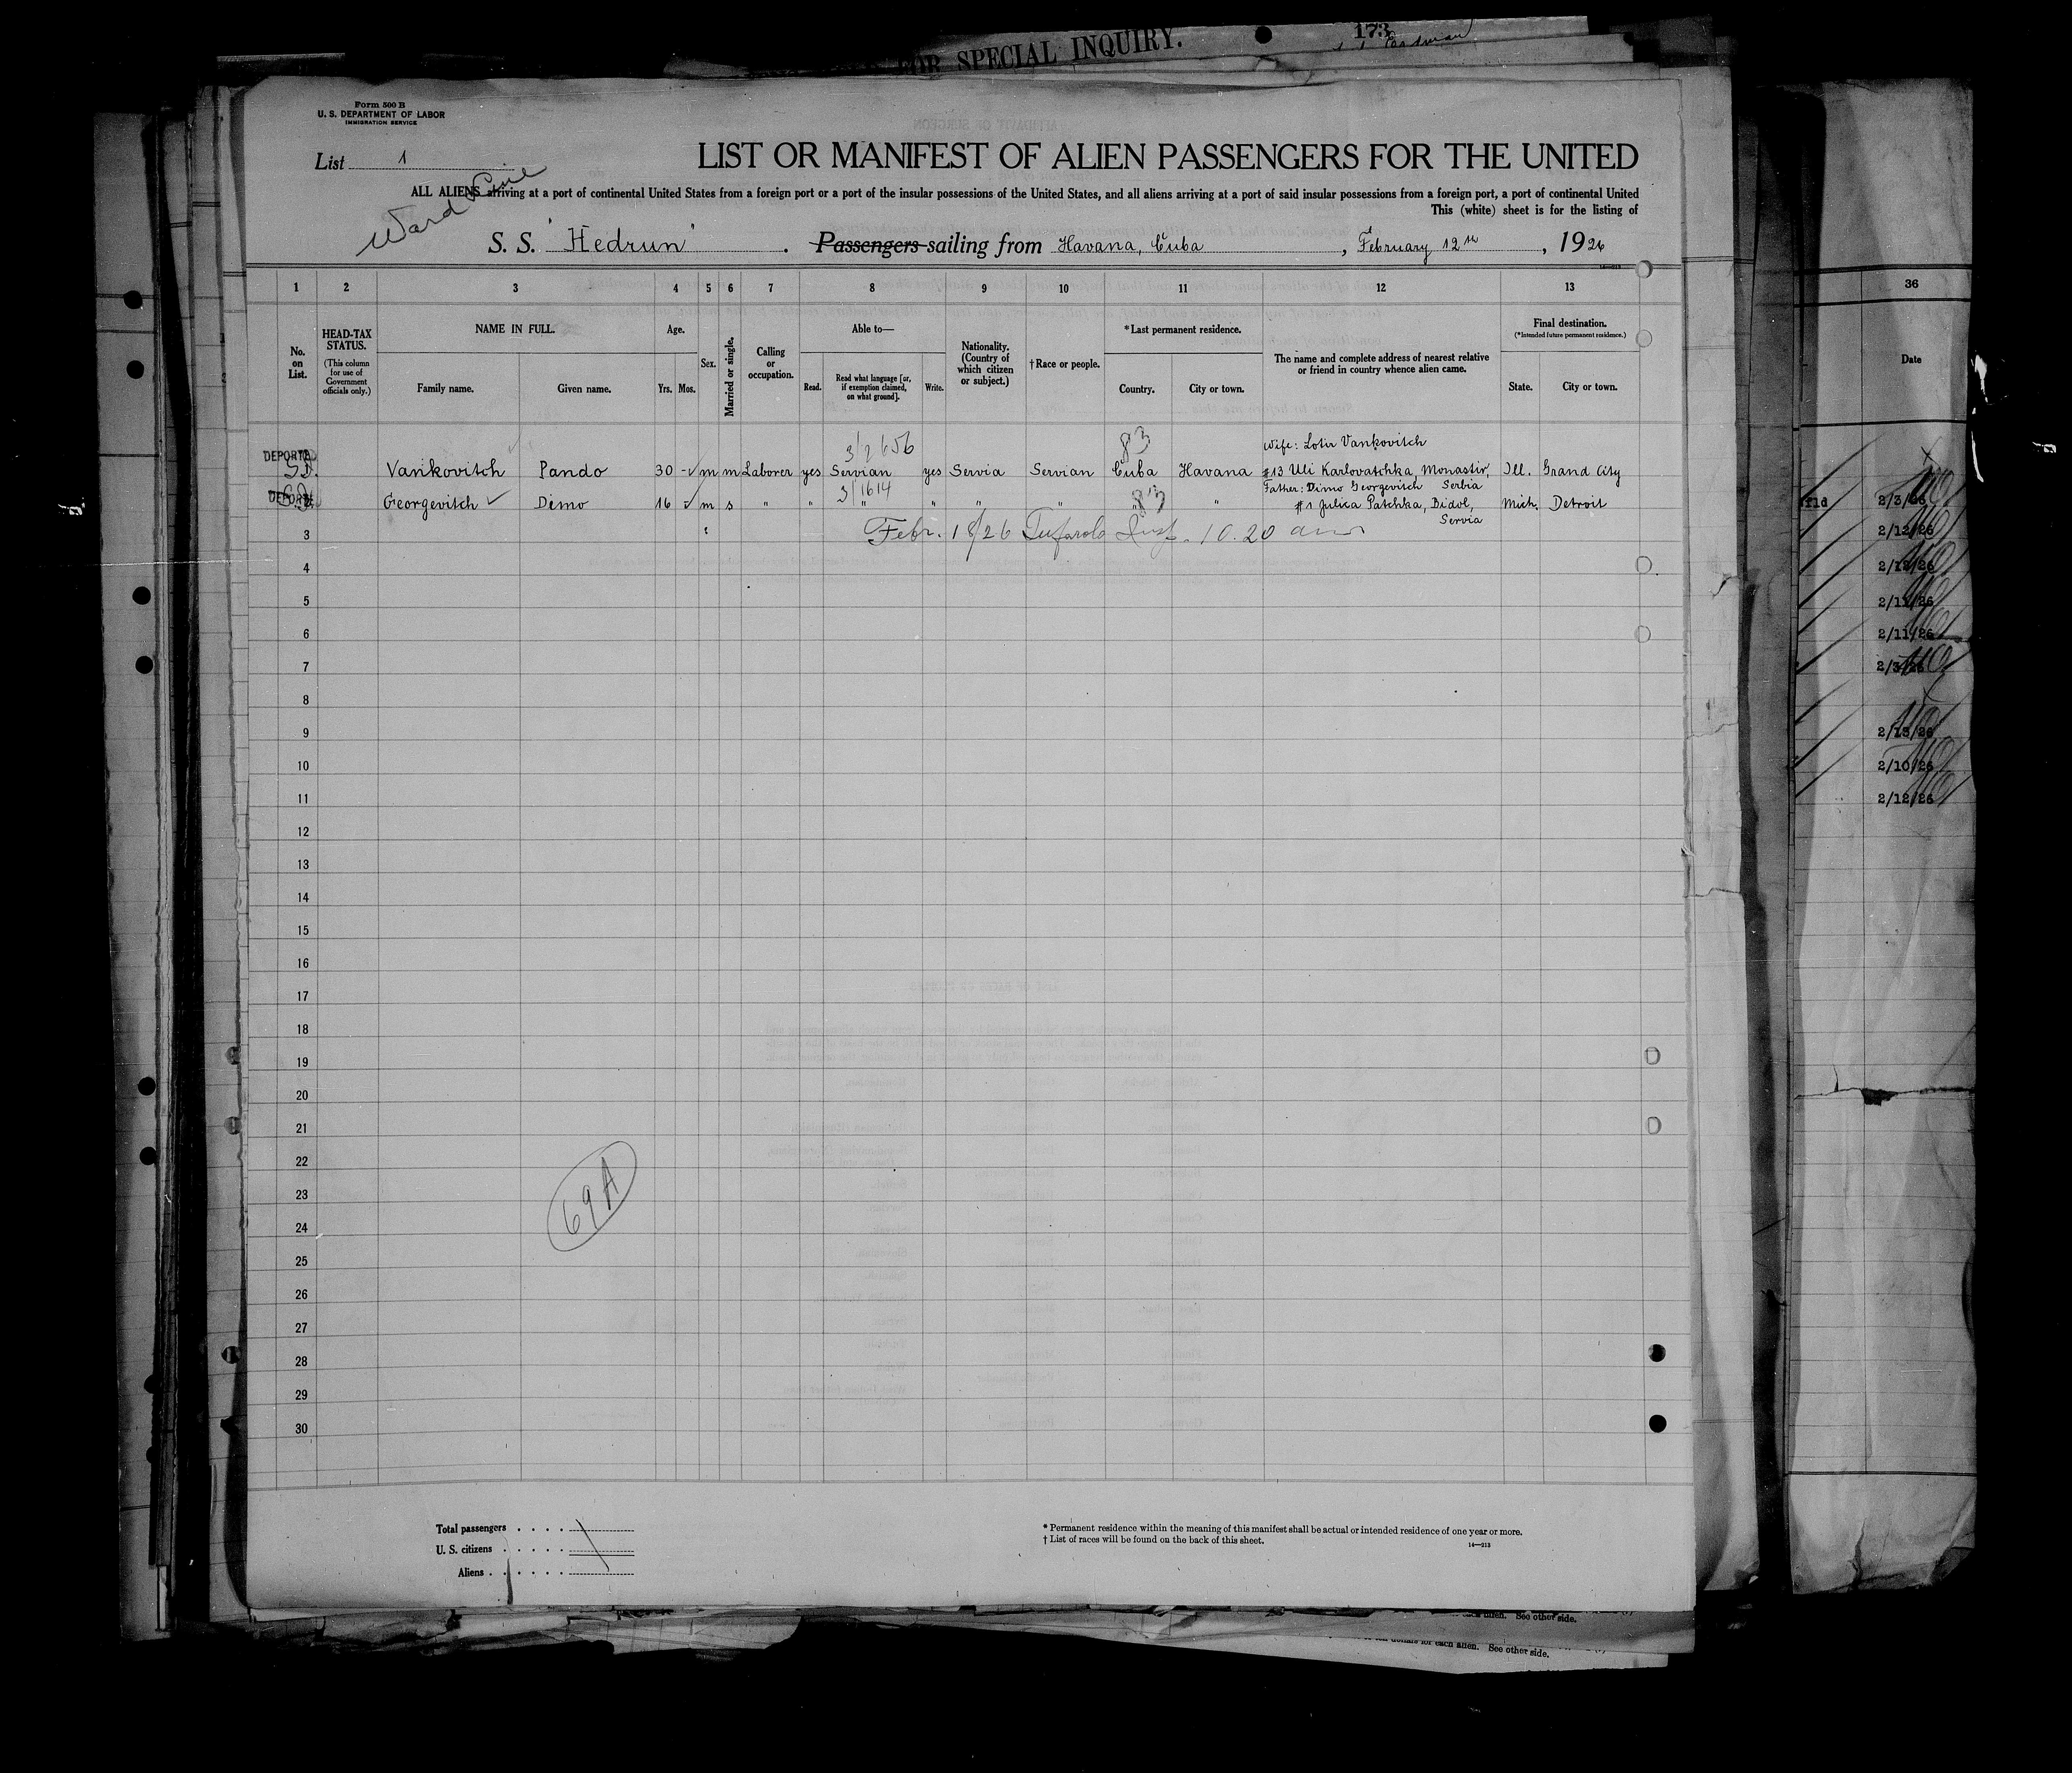 FOR SPECIAL INQUIRY.
173
Form 500 B
U. S. DEPARTMENT OF LABOR
IMMIGRATION SERVICE
List 1
Ward Line
LIST OR MANIFEST OF ALIEN PASSENGERS FOR THE UNITED
ALL ALIENS arriving at a port of continental United States from a foreign port or a port of the insular possessions of the United States, and all aliens arriving at a port of said insular possessions from a foreign port, a port of continental United
This (white) sheet is for the listing of
S. S. "Hedrun" . Passengers sailing from Havana, Cuba , February 12th , 1926
1 2 3 4 5 6 7 8 9 10 11 12 13
No. on List.
HEAD-TAX STATUS.
(This column for use of Government officials only.)
NAME IN FULL.
Family name. Given name.
Age.
Yrs. Mos.
Sex.
Married or single.
Calling or occupation.
Able to—
Read. Read what language [or, if exemption claimed, on what ground]. Write.
Nationality. (Country of which citizen or subject.)
†Race or people.
*Last permanent residence.
Country. City or town.
The name and complete address of nearest relative or friend in country whence alien came.
Final destination.
(*Intended future permanent residence.)
State. City or town.
3/2656 83 Wife: Lotir Vankovitch
DEPORTED Vankovitch Pando 30 - m m Laborer yes Servian yes Servia Servian Cuba Havana #13 Uli Karlovatchka, Monastir, Ill. Grand City
3/1614 Father: Dimo Georgevitch Serbia
Georgevitch Dimo 16 m s " " " " " " 83 " #1 Julica Patchka, Bidol, Mich. Detroit
Servia
3 Febr. 18/26 Insp. 10.20 am
4
5
6
7
8
9
10
11
12
13
14
15
16
17
18
19
20
21
22
23
24
25
26
27
28
29
30
69A
Total passengers
U. S. citizens
Aliens
* Permanent residence within the meaning of this manifest shall be actual or intended residence of one year or more.
† List of races will be found on the back of this sheet.
14—213
36
Date
fld 2/3/26
2/12/26
2/12/26
2/11/26
2/11/26
2/3/26
2/13/26
2/10/26
2/12/26
each alien. See other side.
ten dollars for each alien. See other side.